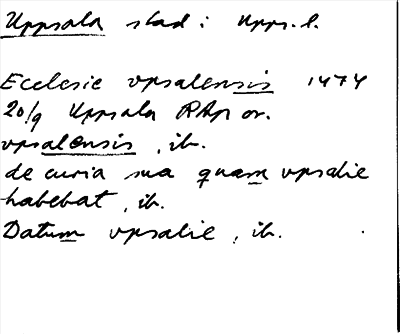 Uppsala stad i Upps. l.
Ecclesie vpsalensis 1474
20/9 Uppsala RAp or.
vpsalensis, ib.
de curia sua quam vpsalie
habebat, ib.
Datum vpsalie, ib.